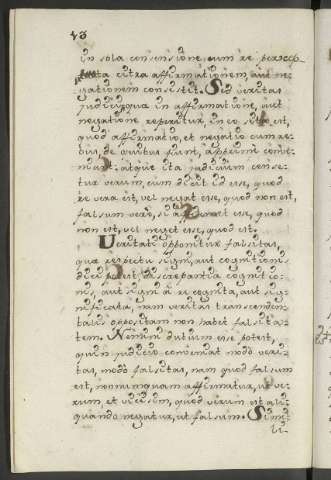 43
in sola consensione cum re percep-
ta citra affirmationem, aut ne-
gationem consistit. Sed veritas
judicij, quae in affirmatione, aut
negatione reperitur, in eo sita est,
quod affirmatio, et negatio cum re-
bus, de quibus fiunt, apprime conve-
niant: atque ita judicium cense-
tur verum, cum dicit id esse, quod
re vera est, vel negat esse, quod non est,
falsum vero, si affirmet esse, quod
non est, vel neget esse, quod est.
Veritati opponitur falsitas,
quae respectu signi, aut cognitionis
dici potest discrepantia cognitio-
nis, aut signi à re cognita, aut sig-
nificata, nam veritas transcenden-
talis oppositam non habet falsita-
tem. Nemini dubium esse potest,
quin judicio conveniat modo veri-
tas, modo falsitas, nam quod falsum
est, nonnunquam affirmatur, ut ve-
rum, et vicissim, quod verum est ali-
quando negatur, ut falsum. Simi-
li-